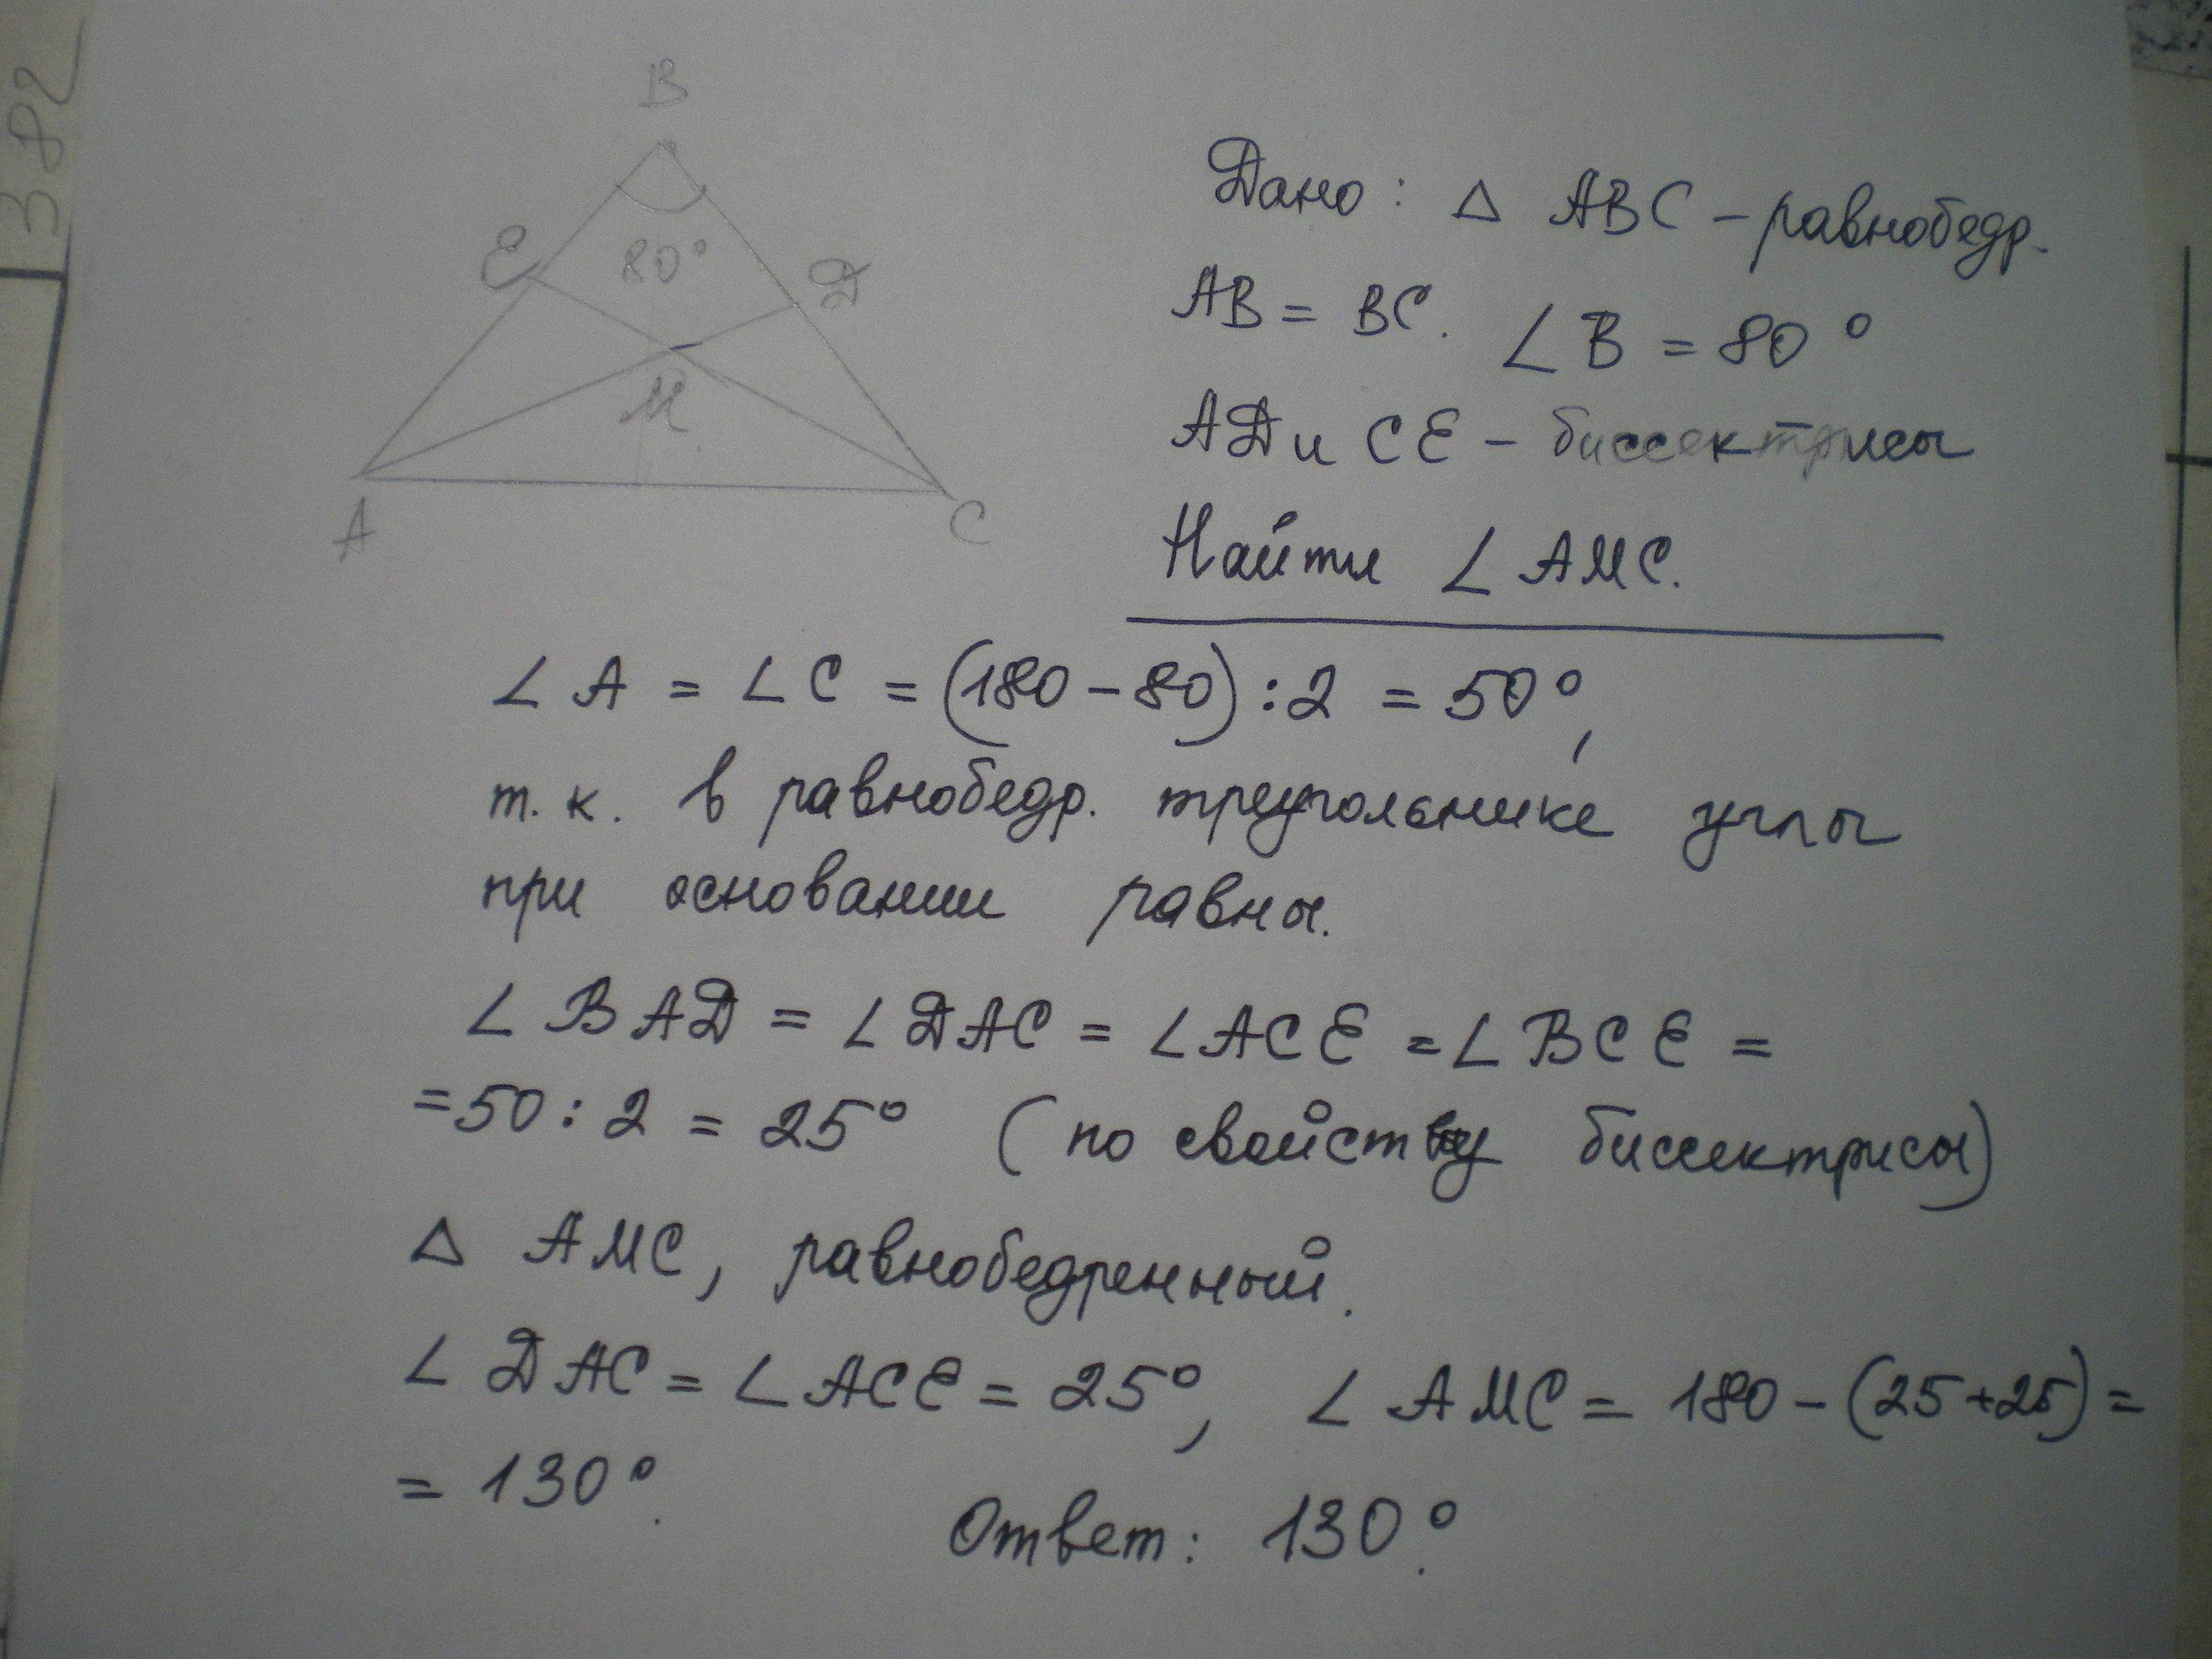 382
B
E
80°
D
M
A
C
Дано: △ ABC – равнобедр.
AB = BC. ∠B = 80°
AD и CE – биссектрисы
Найти ∠AMC.
∠A = ∠C = (180 – 80) : 2 = 50°,
т.к. в равнобедр. треугольнике углы
при основании равны.
∠BAD = ∠DAC = ∠ACE = ∠BCE =
= 50 : 2 = 25° (по свойству биссектрисы)
△ AMC, равнобедренный.
∠DAC = ∠ACE = 25°, ∠AMC = 180 – (25 + 25) =
= 130°.
Ответ: 130°.